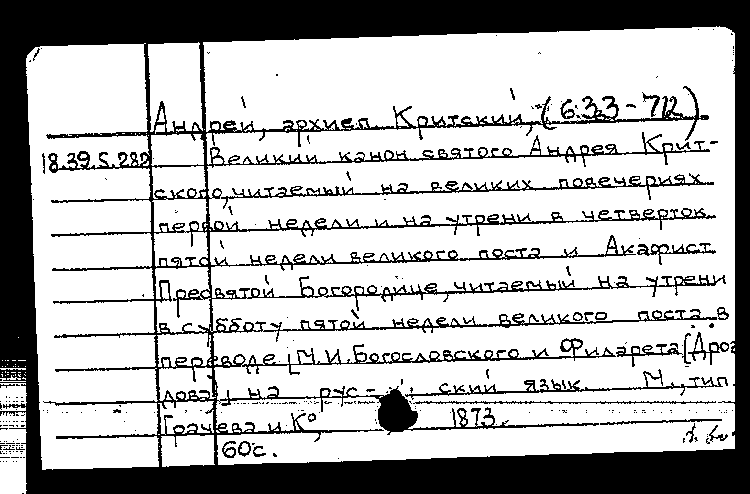 Андрей, архиеп. Критский, (633-712).
18.39.5.282 Великий канон святого Андрея Крит-
ского, читаемый на великих повечериях
первой недели и на утрени в четверток
пятой недели великого поста и Акафист
Пресвятой Богородице, читаемый на утрени
в субботу пятой недели великого поста в
переводе [М.И.Богословского и Филарета [Дроз
дова], на рус- ский язык. М., тип.
Грачева и К°, 1873.
60с.